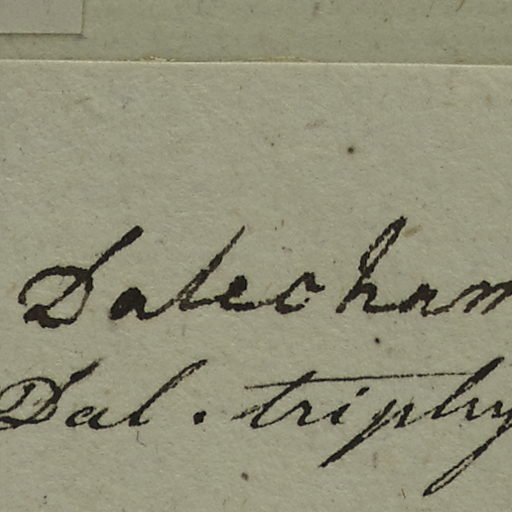 Dalecham
Dal. triphy